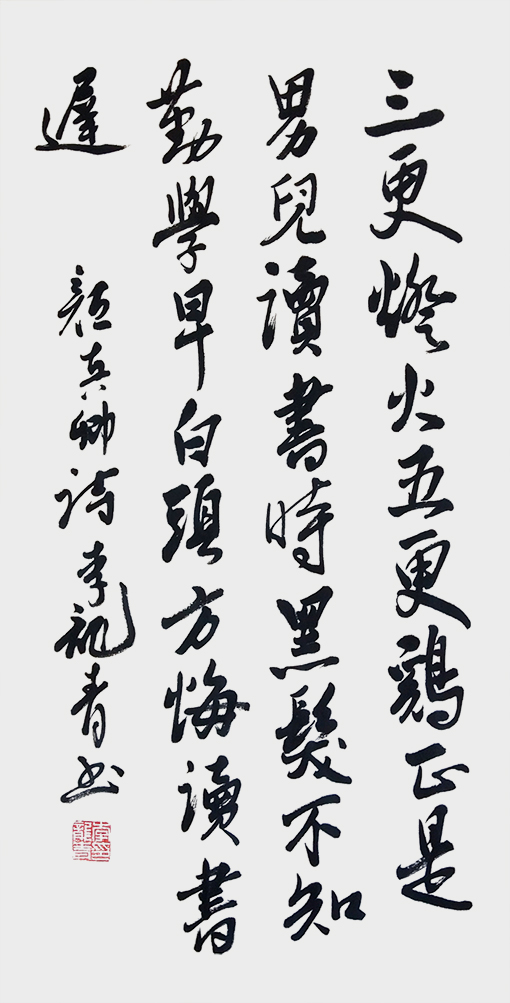 三更燈火五更鷄正是
男兒讀書時黑髮不知
勤學早白頭方悔讀書
遲
顏真卿詩李龍青书